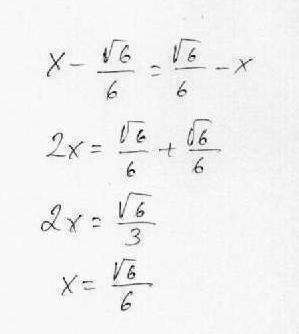 x - √6/6 = √6/6 - x
2x = √6/6 + √6/6
2x = √6/3
x = √6/6